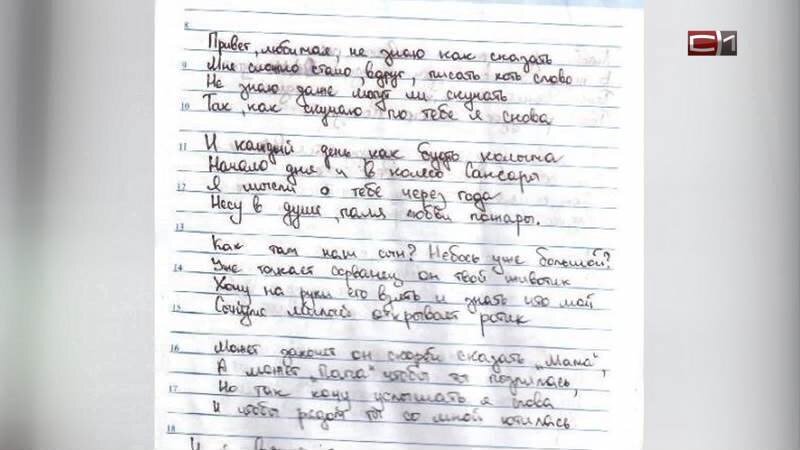 С1
8
Привет, любимая, не знаю как сказать
9
Мне сложно стало, вдруг, писать хоть слово
Не знаю даже могут ли скучать
10
Так, как скучаю по тебе я снова
11
И каждый день как будто колыма
Начало дня и в колесо Сансары
12
Я мысли о тебе через года
Несу в душе, паля любви пожары.
13
Как там наш сын? Небось уже большой?
14
Уже толкает сорванец он твой животик
Хочу на руки его взять и знать что мой
15
Сынуля милый открывает ротик
16
Может захочет он скорби сказать „Мама“,
А может „Папа“ чтобы ты
17
Но так хочу услышать я слова
И чтобы рядом ты со мной ютилась
18